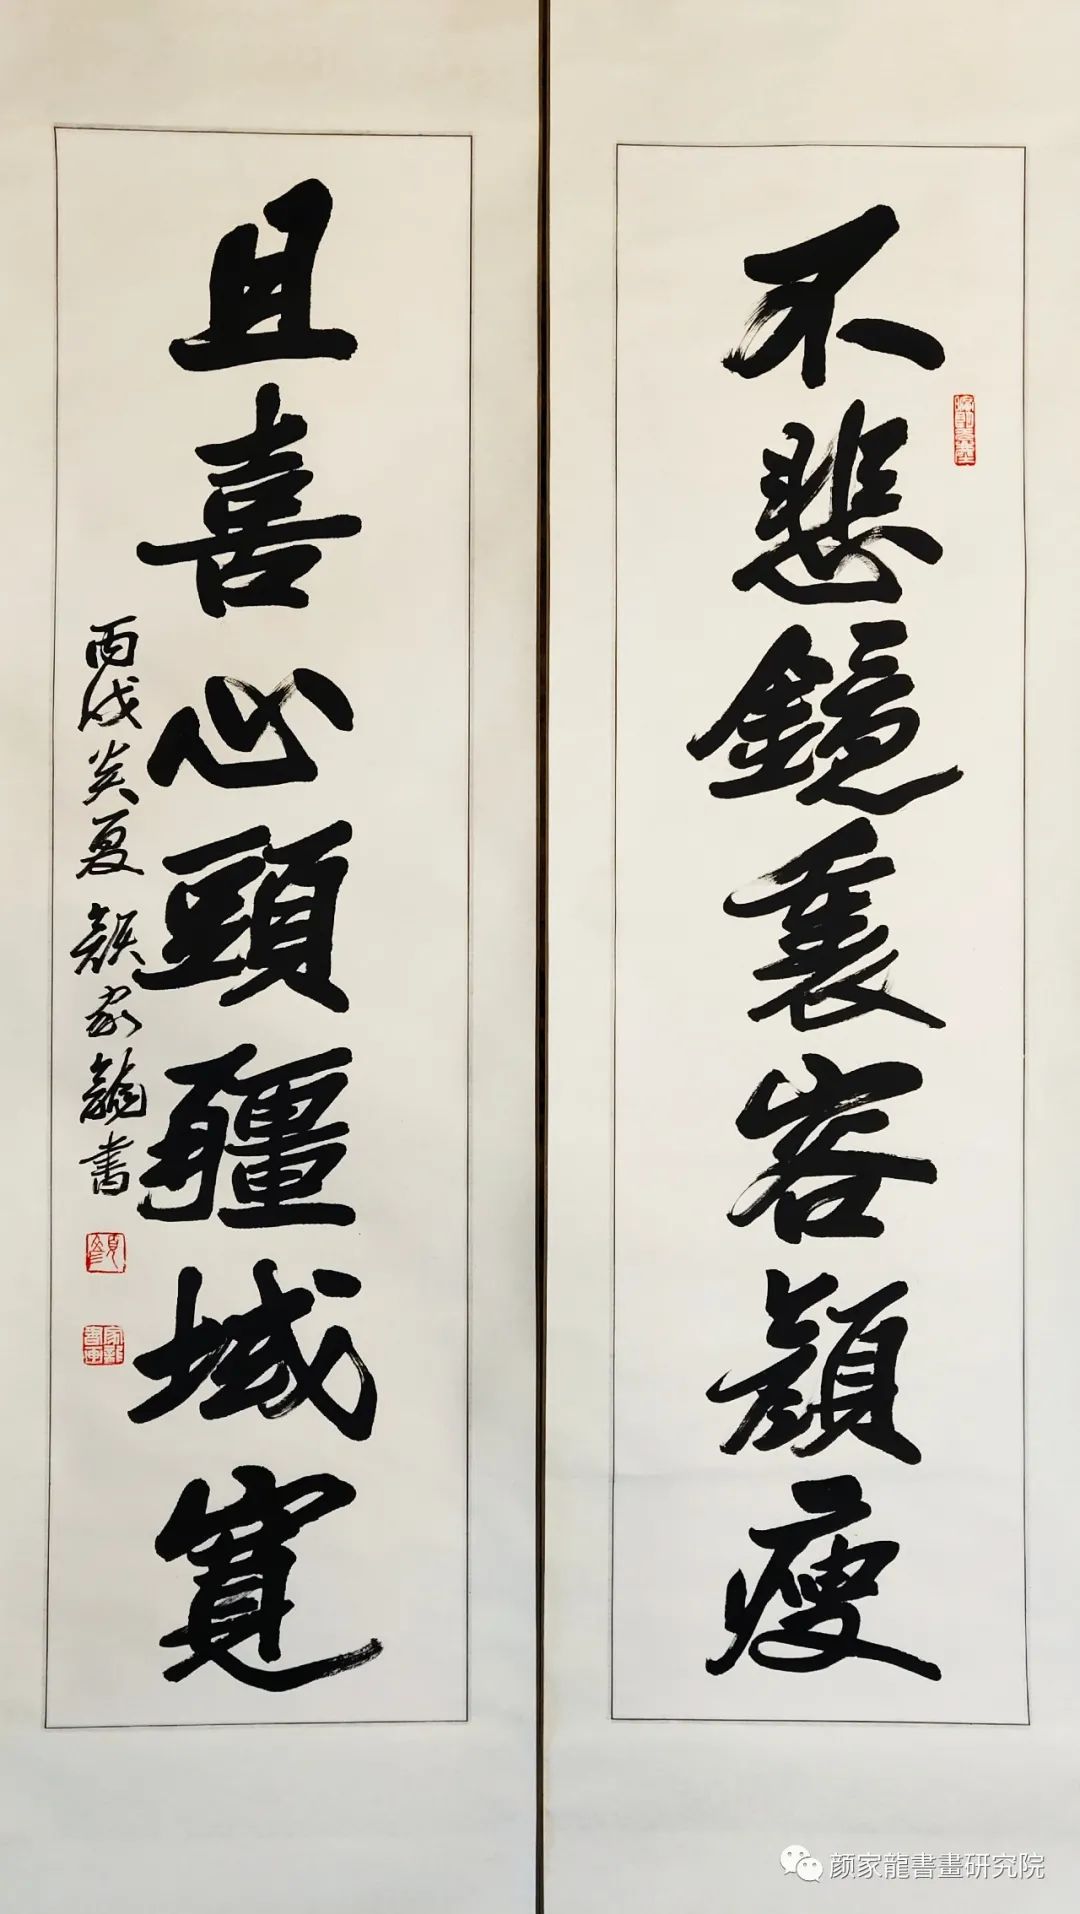 不悲鏡裏容顏瘦
且喜心頭疆域寬
丙戌炎夏 顏家龍書
家龍書画
颜家龍書畫研究院